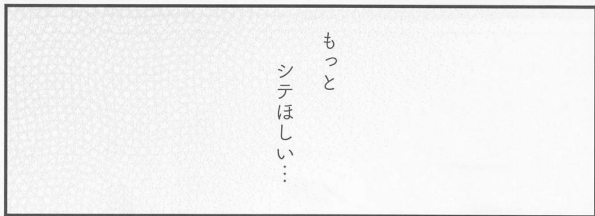 もっと
シテほしい…